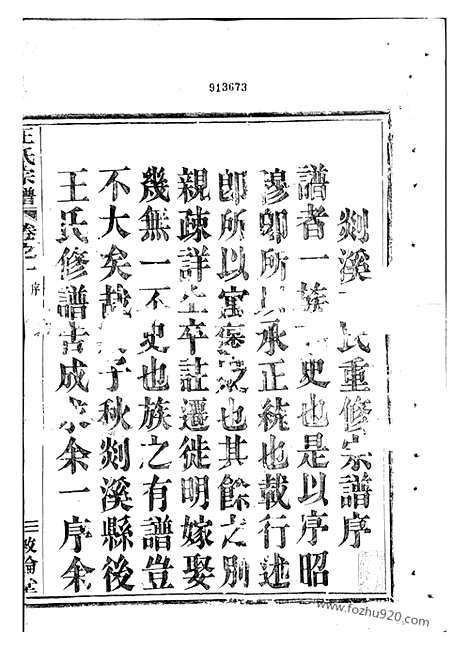 913673
剡溪氏重修宗譜序
譜者一族史也是以序昭
穆卽所承正統也載行述
卽所以寓褒也其餘之別
親疎詳生卒註遷徙明嫁娶
幾無一不史也族之有譜豈
不大矣哉子秋剡溪縣後
王氏修譜吿成余一序余
王氏宗譜 卷之一 序 三 敦倫堂
www.fozhu920.com